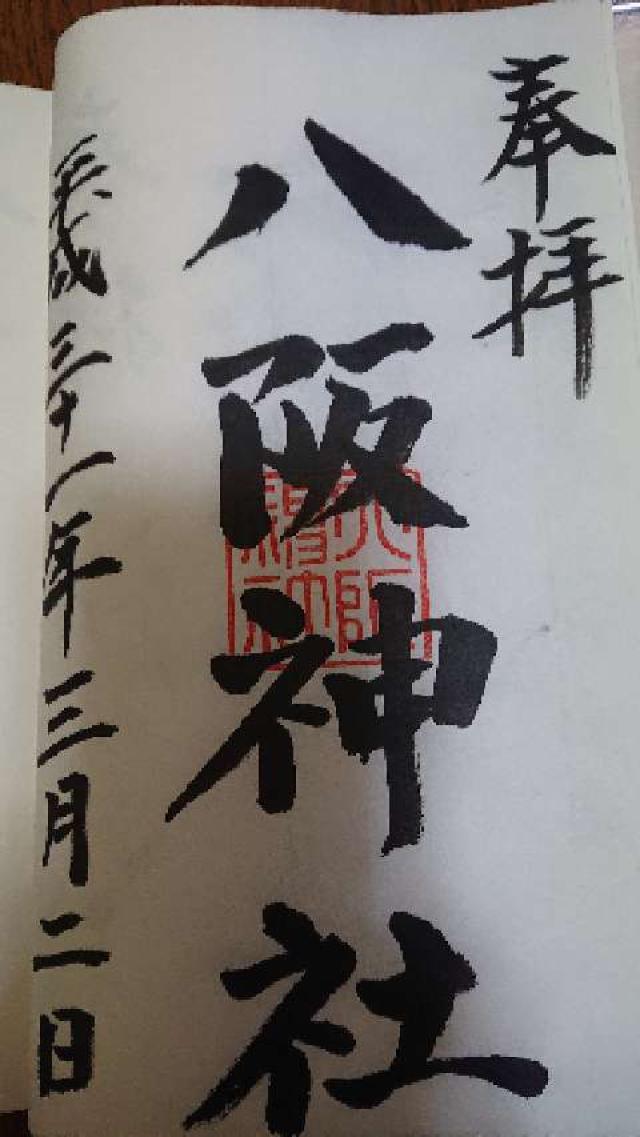 奉拝
八阪神社
平成三十一年三月二日